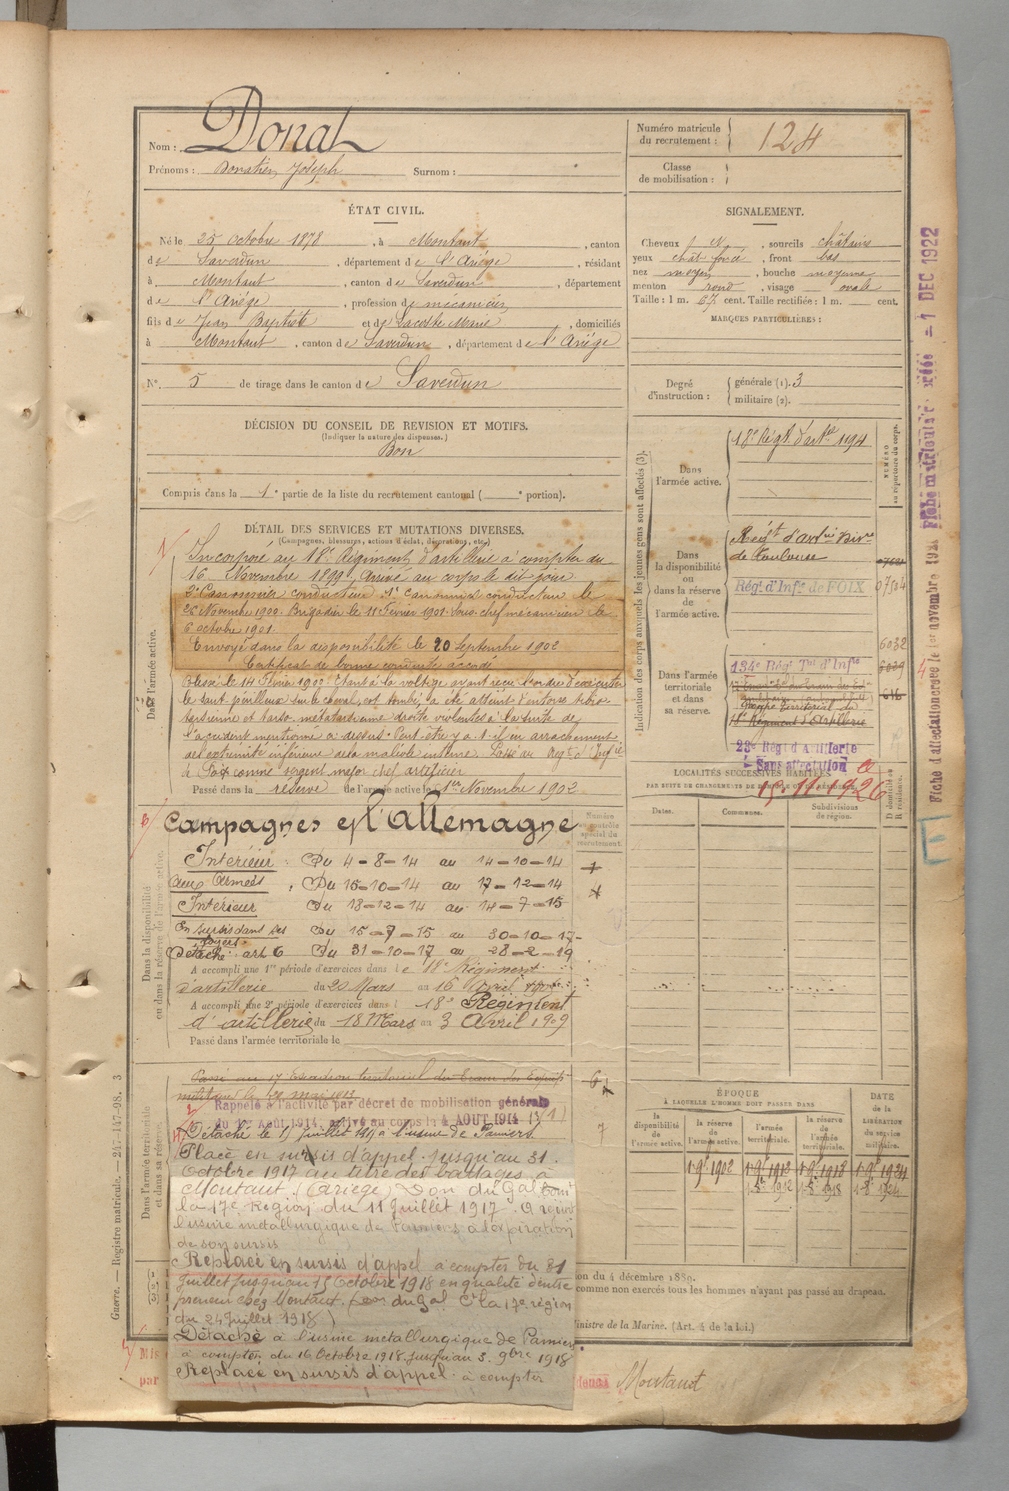 Nom : Donat
Prénoms : Donatien Joseph Surnom :
Numéro matricule du recrutement : 124
Classe de mobilisation :
ÉTAT CIVIL.
Né le 25 octobre 1878, à Montaut, canton
de Saverdun, département de l'Ariége, résidant
à Montaut, canton de Saverdun, département
de l'Ariége, profession de mécanicien
fils de Jean Baptiste et de Lacoste Marie, domiciliés
à Montaut, canton de Saverdun, département de l'Ariége
N° 5 de tirage dans le canton de Saverdun
SIGNALEMENT.
Cheveux, sourcils châtains
yeux chât foncé, front bas
nez moyen, bouche moyenne
menton rond, visage ovale
Taille : 1 m. 67 cent. Taille rectifiée : 1 m. cent.
MARQUES PARTICULIÈRES :
Degré d'instruction : générale (1). 3
militaire (2).
DÉCISION DU CONSEIL DE REVISION ET MOTIFS.
(Indiquer la nature des dispenses.)
Bon
Compris dans la 1e partie de la liste du recrutement cantonal ( e portion).
DÉTAIL DES SERVICES ET MUTATIONS DIVERSES.
(Campagnes, blessures, actions d'éclat, décorations, etc.)
Dans l'armée active.
Incorporé au 18e Régiment d'artillerie à compter du
16 Novembre 1899, arrivé au corps le dit jour
2e Canonnier conducteur 1er Canonnier conducteur le
26 Novembre 1900. Brigadier le 11 Février 1901. Sous-chef mécanicien le
6 octobre 1901.
Envoyé dans la disponibilité le 20 Septembre 1902
Certificat de bonne conduite accordé
Blessé le 14 Février 1900. Étant à la voltige ayant reçu l'ordre d'exécuter
le saut périlleux sur le cheval, est tombé, a été atteint d'entorse tibio-
tarsienne et tarso métatarsienne droite violentes à la suite de
l'accident mentionné ci dessus. Peut-être y a-t-il eu arrachement
de l'extrémité inférieure de la maléole interne. Passé au Régt d'Infie
de Foix comme sergent major chef artificier
Passé dans la réserve de l'armée active le 1er Novembre 1902
Indication des corps auxquels les jeunes gens sont affectés (3).
NUMÉRO au répertoire du corps.
Dans l'armée active.
18e Régt d'artie 1194
Dans la disponibilité ou dans la réserve de l'armée active.
Régt d'artie Divre
de Toulouse
Régt d'Infie de FOIX 07504
Dans l'armée territoriale et dans sa réserve.
134e Régt Tal d'Infie
6032
Groupe territorial du
18e Régiment d'Artillerie
23e Régt d'Artillerie
Sans affectation
15.11.1926
LOCALITÉS SUCCESSIVES HABITÉES
PAR SUITE DE CHANGEMENTS DE DOMICILE OU DE RÉSIDENCE.
Dates. Communes. Subdivisions de région. D domicile ou R résidence.
Dans la disponibilité
ou dans la réserve de l'armée active.
Numéro au contrôle spécial du recrutement.
Campagnes c/ l'Allemagne
Intérieur : Du 4-8-14 au 14-10-14
Aux Armées : Du 15-10-14 au 17-12-14
Intérieur Du 18-12-14 au 14-7-15
En sursis dans ses foyers Du 15-7-15 au 30-10-17
Détaché art 6 Du 31-10-17 au 28-2-19
A accompli une 1re période d'exercices dans le 18e Régiment
d'artillerie du 20 Mars au 16 Avril
A accompli une 2e période d'exercices dans le 18e Régiment
d'artillerie du 18 Mars au 3 Avril 1909
Passé dans l'armée territoriale le
Dans l'armée territoriale
et dans sa réserve.
Passé au 17 Escadron territorial du Train des Équip
militaires le 12 mai 1913
Rappelé à l'activité par décret de mobilisation générale
du 1er Août 1914, arrivé au corps le 4 AOUT 1914 (1)
Détaché le 15 Juillet 1915 à l'usine de Pamiers.
Placé en sursis d'appel jusqu'au 31
Octobre 1917 au titre des battages, à
Montaut (Ariège) Don du Gal Comt
la 17e Région du 11 Juillet 1917. A rejoint
l'usine métallurgique de Pamiers à l'expiration
de son sursis
Replacé en sursis d'appel à compter du 31
Juillet jusqu'au 15 Octobre 1918 en qualité d'entre
preneur chez Montaut. (Don du Gal Ct la 17e région
du 24 Juillet 1918)
Détaché à l'usine métallurgique de Pamiers
à compter du 16 Octobre 1918 jusqu'au 3. 9bre 1918
Replacé en sursis d'appel à compter
ÉPOQUE
A LAQUELLE L'HOMME DOIT PASSER DANS
DATE de la LIBÉRATION du service militaire.
la disponibilité de l'armée active. la réserve de l'armée active. l'armée territoriale. la réserve de l'armée territoriale.
1 9bre 1902 1 9bre 1912 1 9bre 1918 1 9bre 1924
on du 4 décembre 1889.
comme non exercés tous les hommes n'ayant pas passé au drapeau.
inistre de la Marine. (Art. 4 de la loi.)
Montaut
Guerre. — Registre matricule. — 247-147-98. 3
Fiche matriculaire créée = 1 DEC 1922
Fiche d'affectation créée le 1er novembre 192